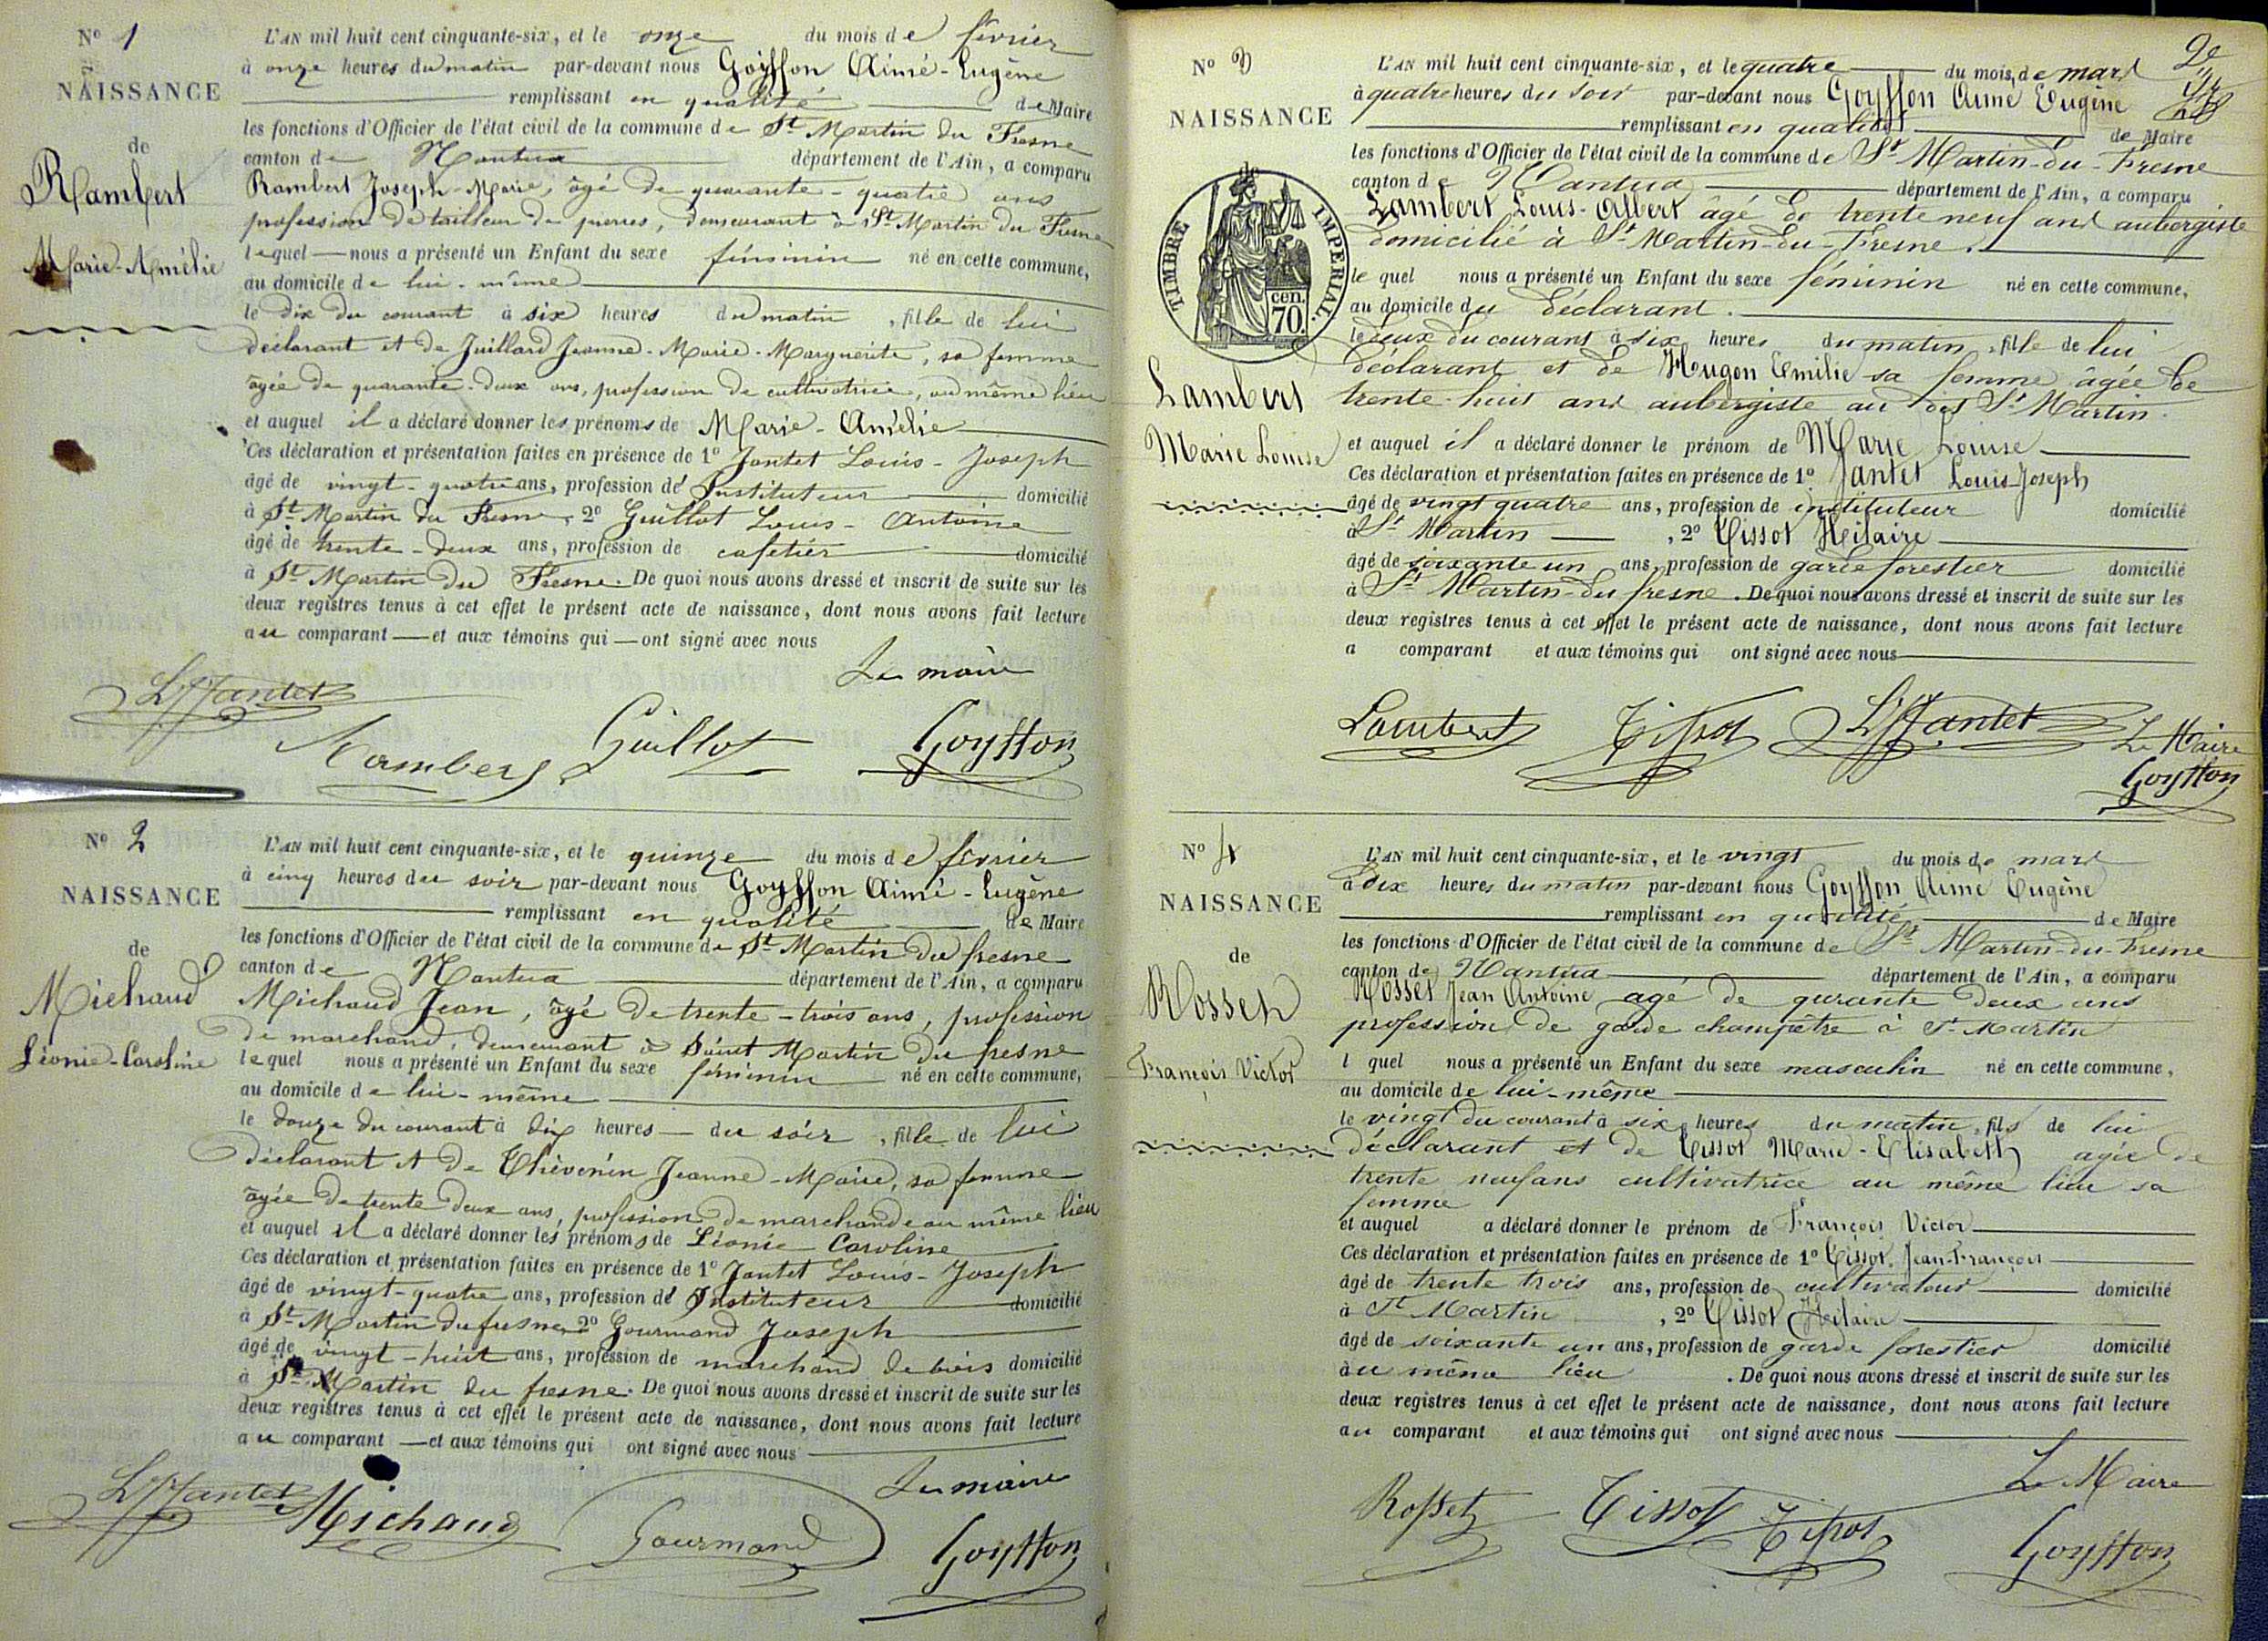 N° 1
NAISSANCE
de
Rambert
Marie-Amélie
L'AN mil huit cent cinquante-six, et le onze du mois de février
à onze heures du matin par-devant nous Goyffon Aimé-Eugène
remplissant en qualité de Maire
les fonctions d'Officier de l'état civil de la commune de St Martin du Fresne
canton de Nantua département de l'Ain, a comparu
Rambert Joseph-Marie, âgé de quarante-quatre ans
profession de tailleur de pierres, demeurant à St Martin du Fresne
lequel nous a présenté un Enfant du sexe féminin né en cette commune,
au domicile de lui-même
le dix du courant à six heures du matin, fille de lui
déclarant et de Juillard Jeanne-Marie-Marguerite, sa femme
âgée de quarante-deux ans, profession de cultivatrice, au même lieu
et auquel il a déclaré donner les prénoms de Marie-Amélie
Ces déclaration et présentation faites en présence de 1° Jantet Louis-Joseph
âgé de vingt-quatre ans, profession de Instituteur domicilié
à St Martin du Fresne, 2° Guillot Louis-Antoine
âgé de trente-deux ans, profession de cafetier domicilié
à St Martin du Fresne. De quoi nous avons dressé et inscrit de suite sur les
deux registres tenus à cet effet le présent acte de naissance, dont nous avons fait lecture
au comparant et aux témoins qui ont signé avec nous
Le maire
LJJantet
Rambert Guillot Goyffon
N° 2
NAISSANCE
de
Michaud
Léonie-Caroline
L'AN mil huit cent cinquante-six, et le quinze du mois de février
à cinq heures du soir par-devant nous Goyffon Aimé-Eugène
remplissant en qualité de Maire
les fonctions d'Officier de l'état civil de la commune de St Martin du fresne
canton de Nantua département de l'Ain, a comparu
Michaud Jean, âgé de trente-trois ans, profession
de marchand, demeurant à Saint Martin du fresne
lequel nous a présenté un Enfant du sexe féminin né en cette commune,
au domicile de lui-même
le douze du courant à dix heures du soir, fille de lui
déclarant et de Thévenin Jeanne-Marie, sa femme
âgée de trente deux ans, profession de marchande au même lieu
et auquel il a déclaré donner les prénoms de Léonie Caroline
Ces déclaration et présentation faites en présence de 1° Jantet Louis-Joseph
âgé de vingt-quatre ans, profession de Instituteur domicilié
à St Martin du fresne, 2° Gourmand Joseph
âgé de vingt-huit ans, profession de marchand de bois domicilié
à St Martin du fresne. De quoi nous avons dressé et inscrit de suite sur les
deux registres tenus à cet effet le présent acte de naissance, dont nous avons fait lecture
au comparant et aux témoins qui ont signé avec nous
Le maire
LJJantet Michaud Gourmand Goyffon
2e
N° 3
NAISSANCE
de
TIMBRE IMPERIAL.
cen.
70.
Lambert
Marie Louise
L'AN mil huit cent cinquante-six, et le quatre du mois de mars
à quatre heures du soir par-devant nous Goyffon Aimé Eugène
remplissant en qualité de Maire
les fonctions d'Officier de l'état civil de la commune de St Martin-du-Fresne
canton de Nantua département de l'Ain, a comparu
Lambert Louis-Albert âgé de trente neuf ans aubergiste
domicilié à St Martin-du-Fresne.
le quel nous a présenté un Enfant du sexe féminin né en cette commune,
au domicile du déclarant.
le deux du courant à six heures du matin, fille de lui
déclarant et de Hugon Emilie sa femme âgée de
trente-huit ans aubergiste au dit St Martin.
et auquel il a déclaré donner le prénom de Marie Louise
Ces déclaration et présentation faites en présence de 1° Jantet Louis Joseph
âgé de vingt quatre ans, profession de instituteur domicilié
à St Martin, 2° Tissot Hilaire
âgé de soixante un ans, profession de garde forestier domicilié
à St Martin-du fresne. De quoi nous avons dressé et inscrit de suite sur les
deux registres tenus à cet effet le présent acte de naissance, dont nous avons fait lecture
a comparant et aux témoins qui ont signé avec nous
Lambert Tissot LJJantet Le Maire
Goyffon
N° 4
NAISSANCE
de
Rosset
François Victor
L'AN mil huit cent cinquante-six, et le vingt du mois de mars
à dix heures du matin par-devant nous Goyffon Aimé Eugène
remplissant en qualité de Maire
les fonctions d'Officier de l'état civil de la commune de St Martin-du-Fresne
canton de Nantua département de l'Ain, a comparu
Rosset Jean Antoine agé de qurante deux ans
profession de garde champêtre à St Martin
l quel nous a présenté un Enfant du sexe masculin né en cette commune,
au domicile de lui-même
le vingt du courant à six heures du matin, fils de lui
déclarant et de Tissot Marie-Elisabeth agée de
trente neuf ans cultivatrice au même lieu sa
femme
et auquel a déclaré donner le prénom de François Victor
Ces déclaration et présentation faites en présence de 1° Tissot Jean-François
âgé de trente trois ans, profession de cultivateur domicilié
à St Martin, 2° Tissot Hilaire
âgé de soixante un ans, profession de garde forestier domicilié
au même lieu. De quoi nous avons dressé et inscrit de suite sur les
deux registres tenus à cet effet le présent acte de naissance, dont nous avons fait lecture
au comparant et aux témoins qui ont signé avec nous
Le Maire
Rosset Tissot Tissot Goyffon